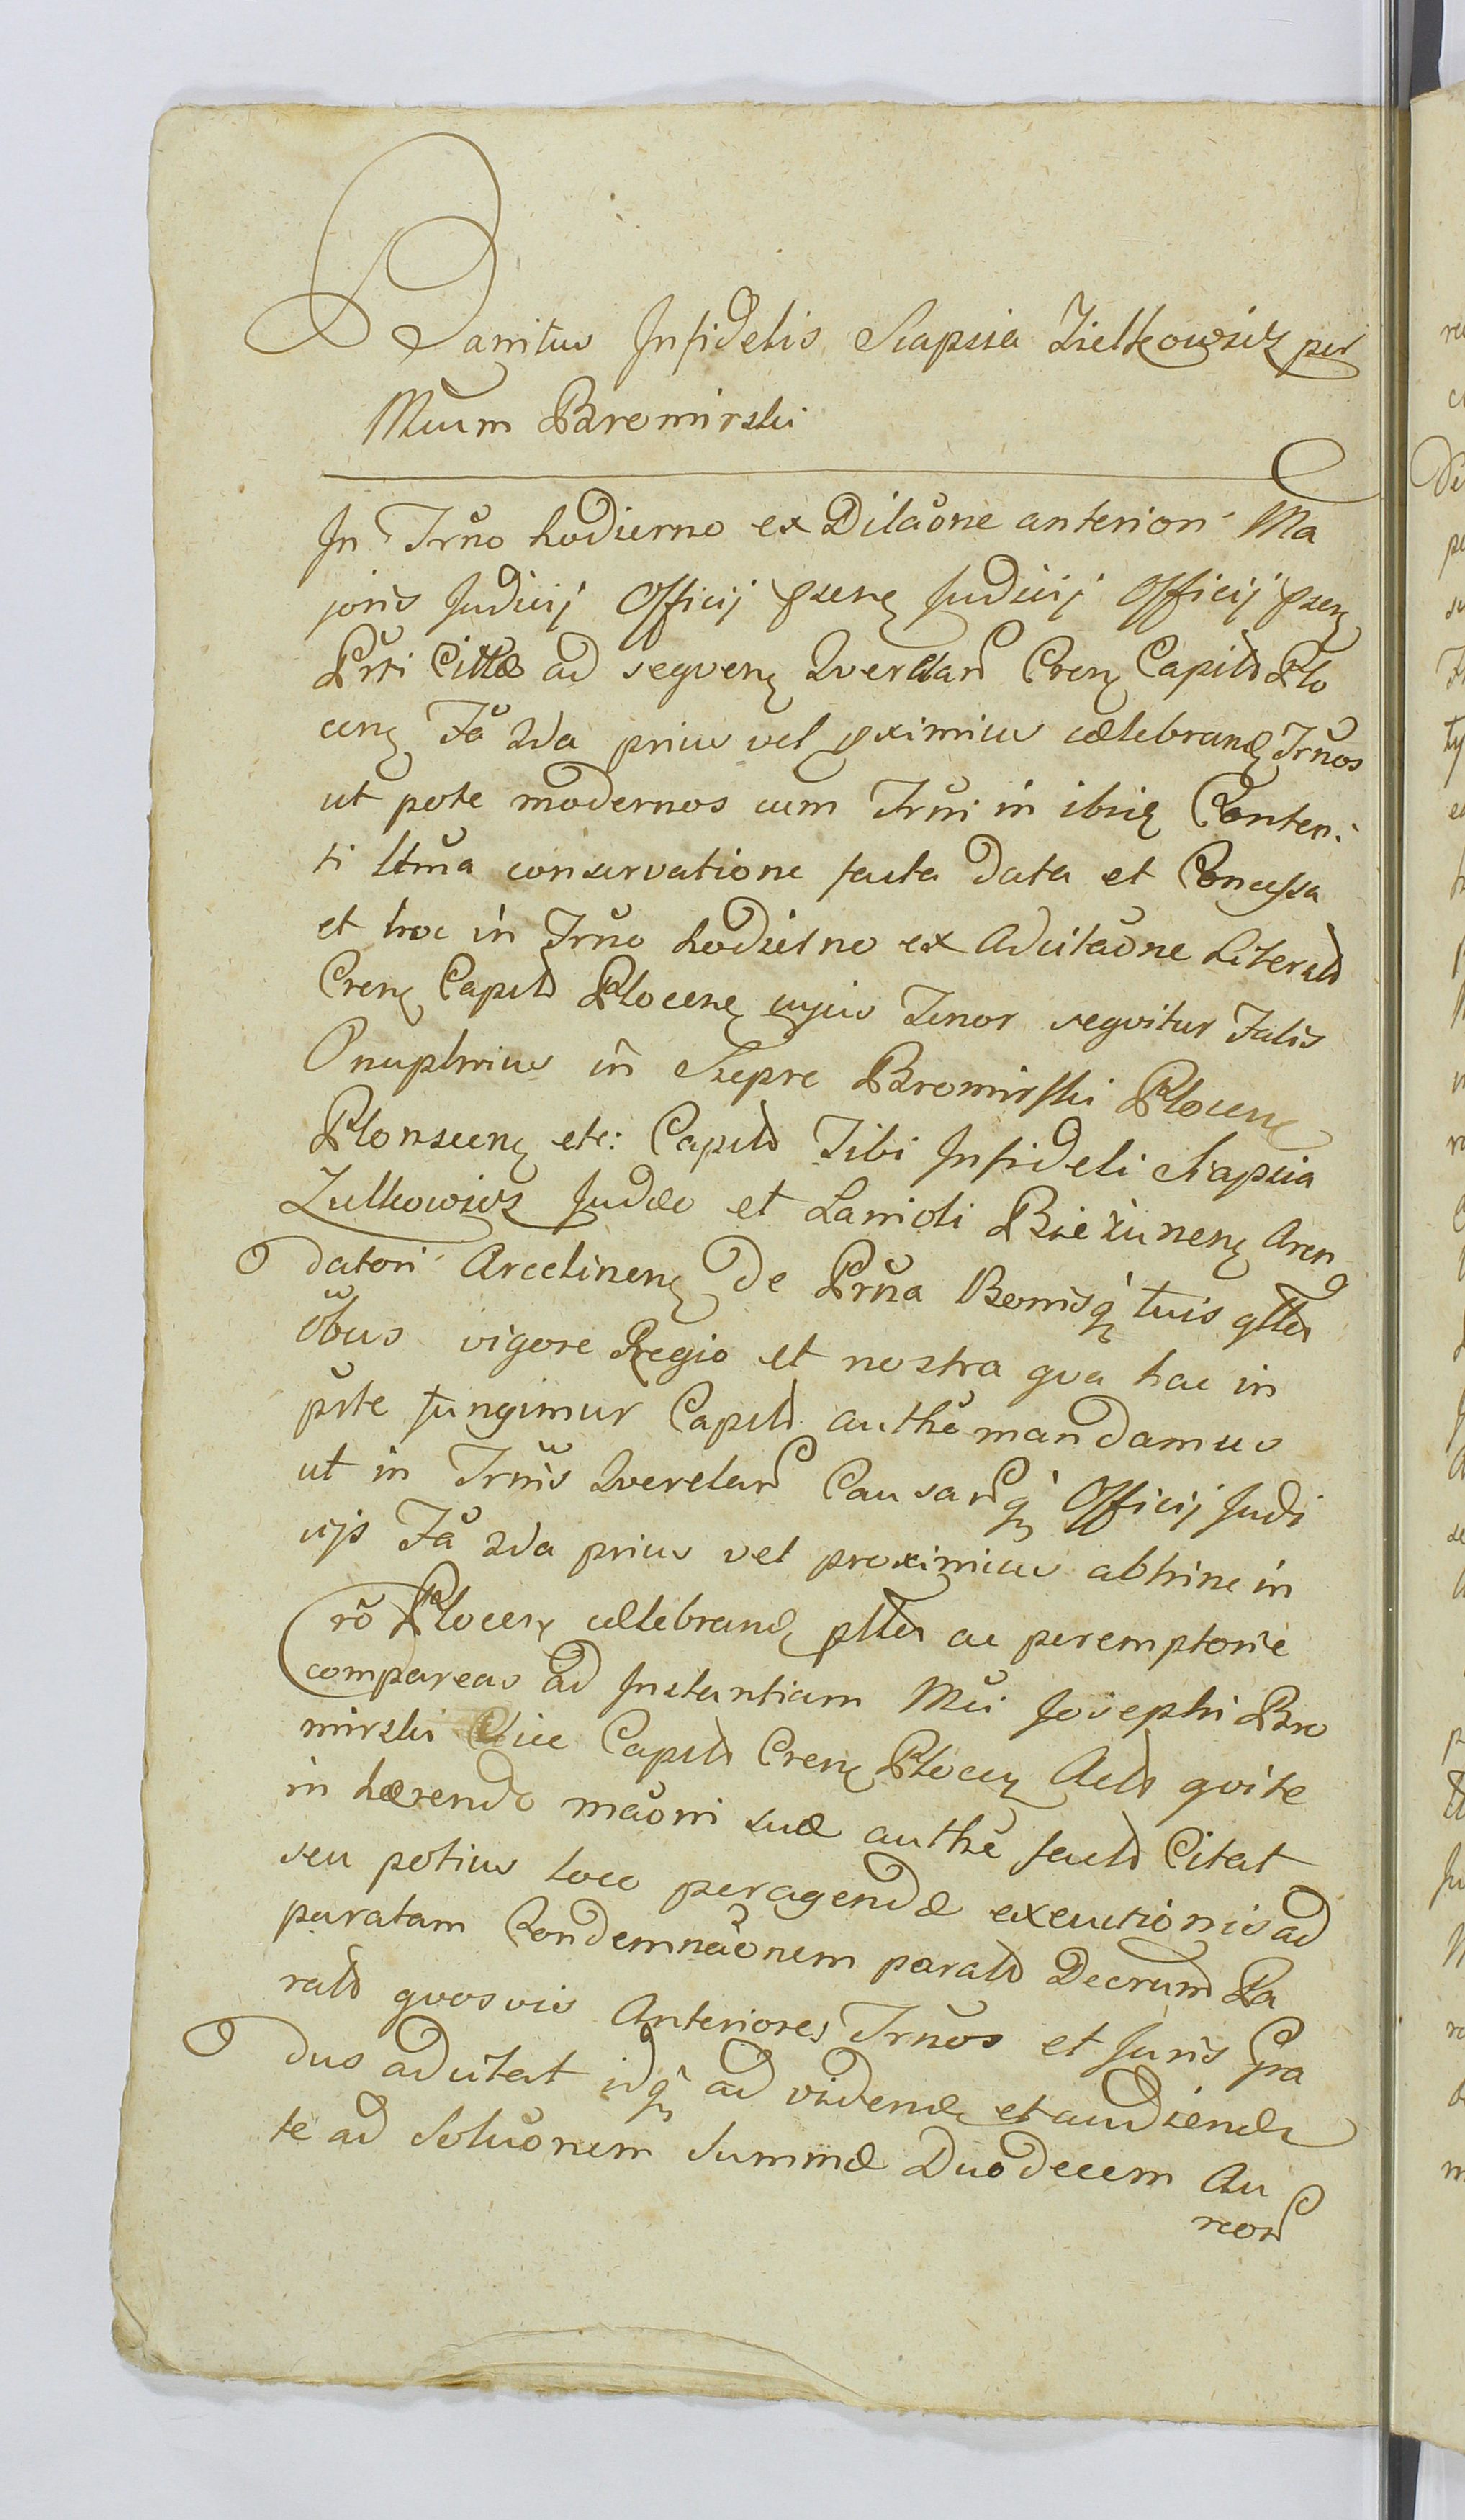 Banitus Infidelis Szapsia Zielkowicz per
Mcum Bromirski
In Trno hodierno ex Dilaone anteriori Ma
joris Judicij Officij psenꝫ Judicij Officij psenꝫ
Prti Cittae ad seqvenꝫ Qverelar Crenꝫ Capitlis Plo
cenꝫ Fa 2da prius vel pximius celebrandꝫ Trnos
ut pote modernos cum Trni in ibidꝫ Conten:
ti ltma conservatione facta data et Concessa
et hoc in Trno hodierno ex Adcitaone Literali
Crenꝫ Capitlis Plocenꝫ cujus Tenor seqvitur Talis
Onuphrius in Siepre Bromirski Plocenꝫ
Plonscenꝫ etc: Capitlis Tibi Infideli Szapsia
Zielkowicz Judaeo et Lanioli Bieżunenꝫ Aren
datori Arcelinenꝫ De Prna Bonisqꝫ tuis gttr
obus vigore Regio et nostra qva hac in
prte fungimur Capitli autthe mandamus
ut in Trnis Qverelar Causarqꝫ Officij Judi
cijs Fa 2da prius vel proximius abhinc in
ro Plocenꝫ celebrandꝫ pttr ac peremptorie
compareas ad Instantiam Mci Josephi Bro
mirski Vice Capitli Crenꝫ Plocenꝫ Actor qvi te
in haerendo maoni suae autthe factae Citat
seu potius loco peragendae executionis ad
paratam Condemnaonem paratis Decrum Pa
ratis qvosvis Anteriores Trnos et Juris Gra
dus adcitat idqꝫ ad videndꝫ et audiendꝫ
te ad Soluonem Summae Duodecem Au
reor